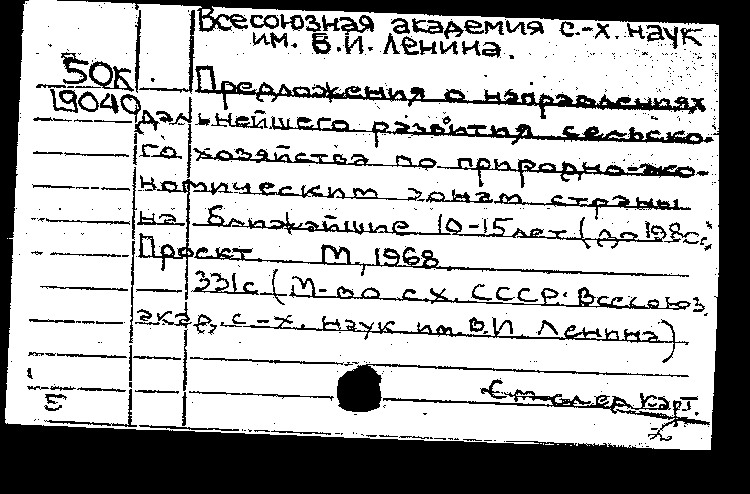 Всесоюзная академия с.-х. наук
им. В.И. Ленина.
50К
19040
Предложения о направлениях
дальнейшего развития сельско-
го хозяйства по природно-эко-
номическим зонам страны
на ближайшие 10-15 лет (до 1980г.)
Проект. М., 1968.
331с (М-во с.х. СССР. Всесоюз.
акад. с.-х. наук им. В.И. Ленина)
См. след карт.
5